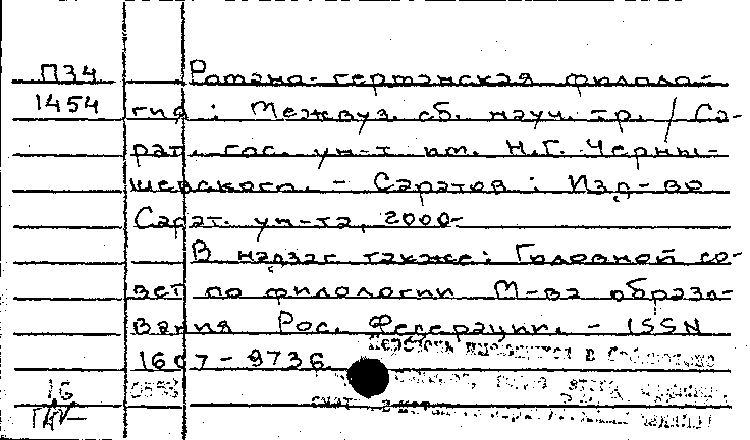 П34 Романо-германская филоло-
1454 гия : Межвуз. сб. науч. тр. / Са-
рат. гос. ун-т им. Н.Г. Черны-
шевского. - Саратов : Изд-во
Сарат. ун-та, 2000-
В надзаг также: Головной со-
вет по филологии М-ва образо-
вания Рос. Федерации. - ISSN
1607-9736
16